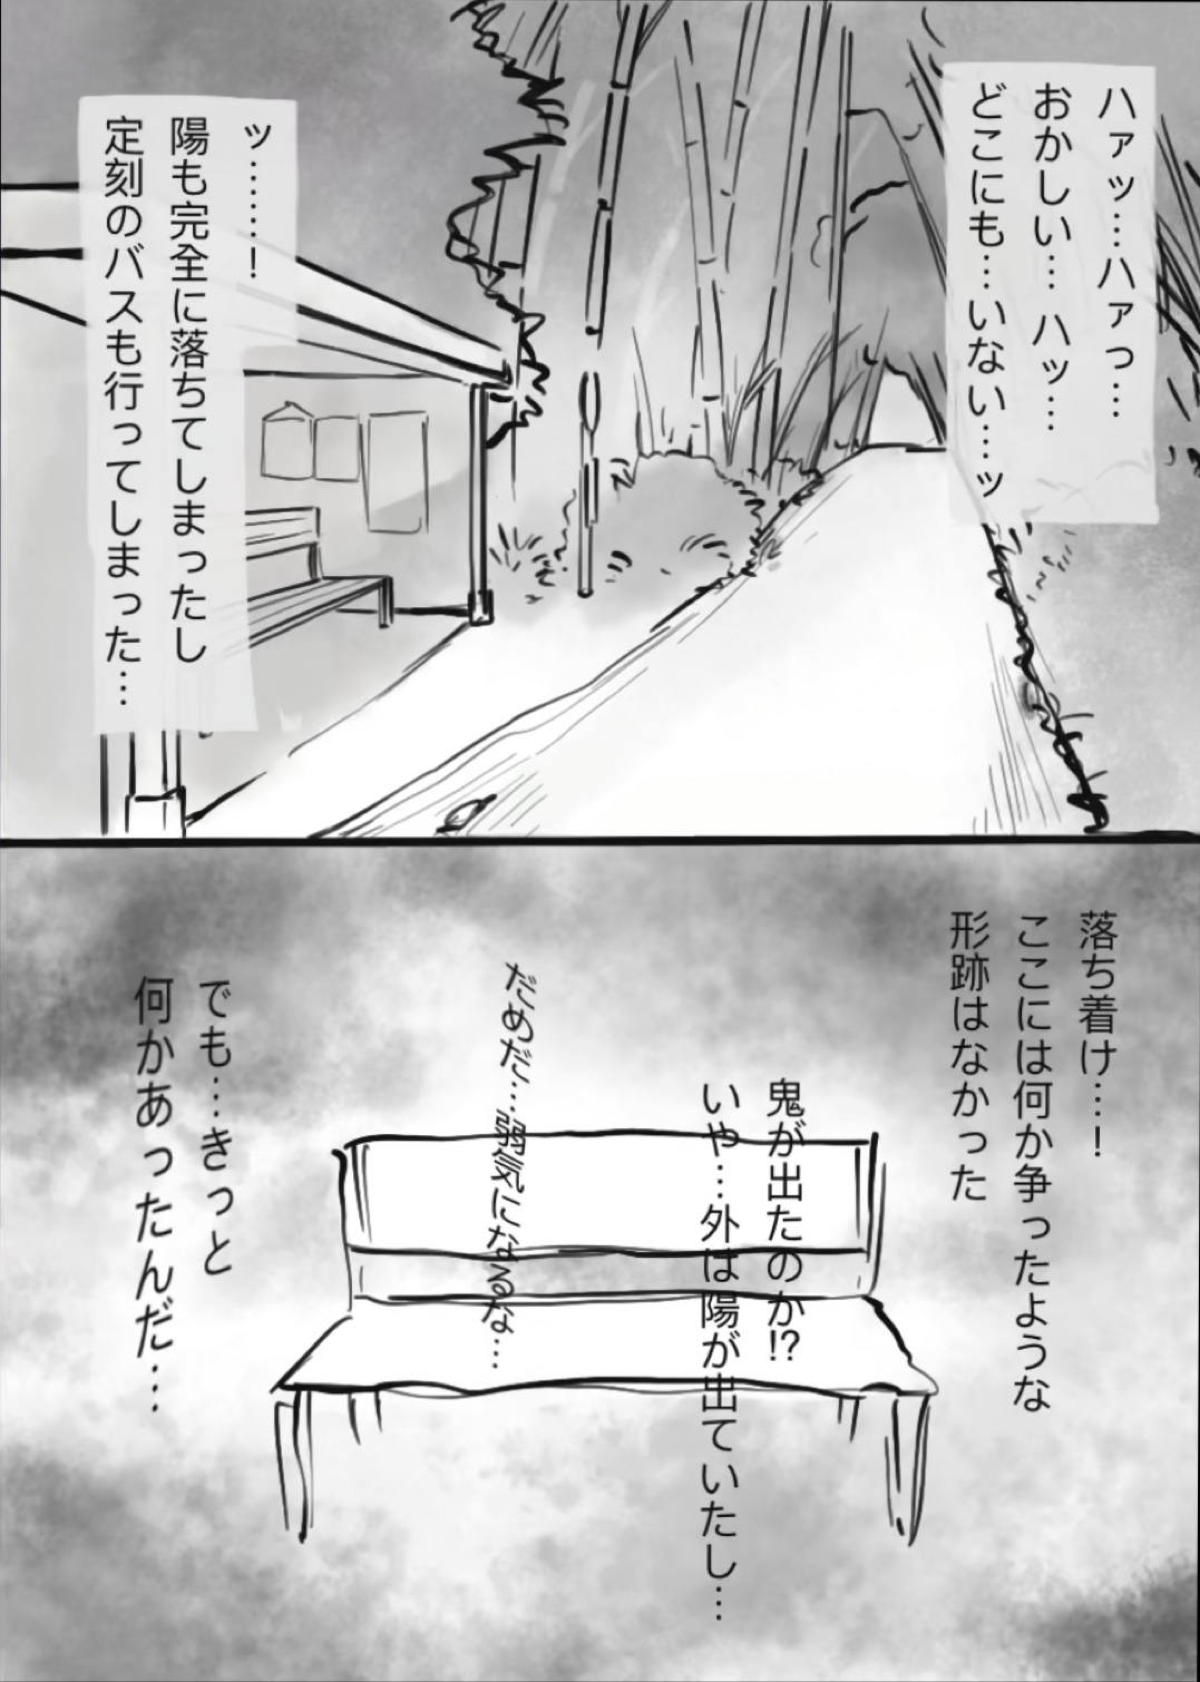 ハァッ…ハァっ…
おかしい…ハッ…
どこにも…いない…ッ
ッ……！
陽も完全に落ちてしまったし
定刻のバスも行ってしまった…
落ち着け…！
ここには何か争ったような
形跡はなかった
鬼が出たのか!?
いや…外は陽が出ていたし…
だめだ…弱気になるな…
でも…きっと
何かあったんだ…